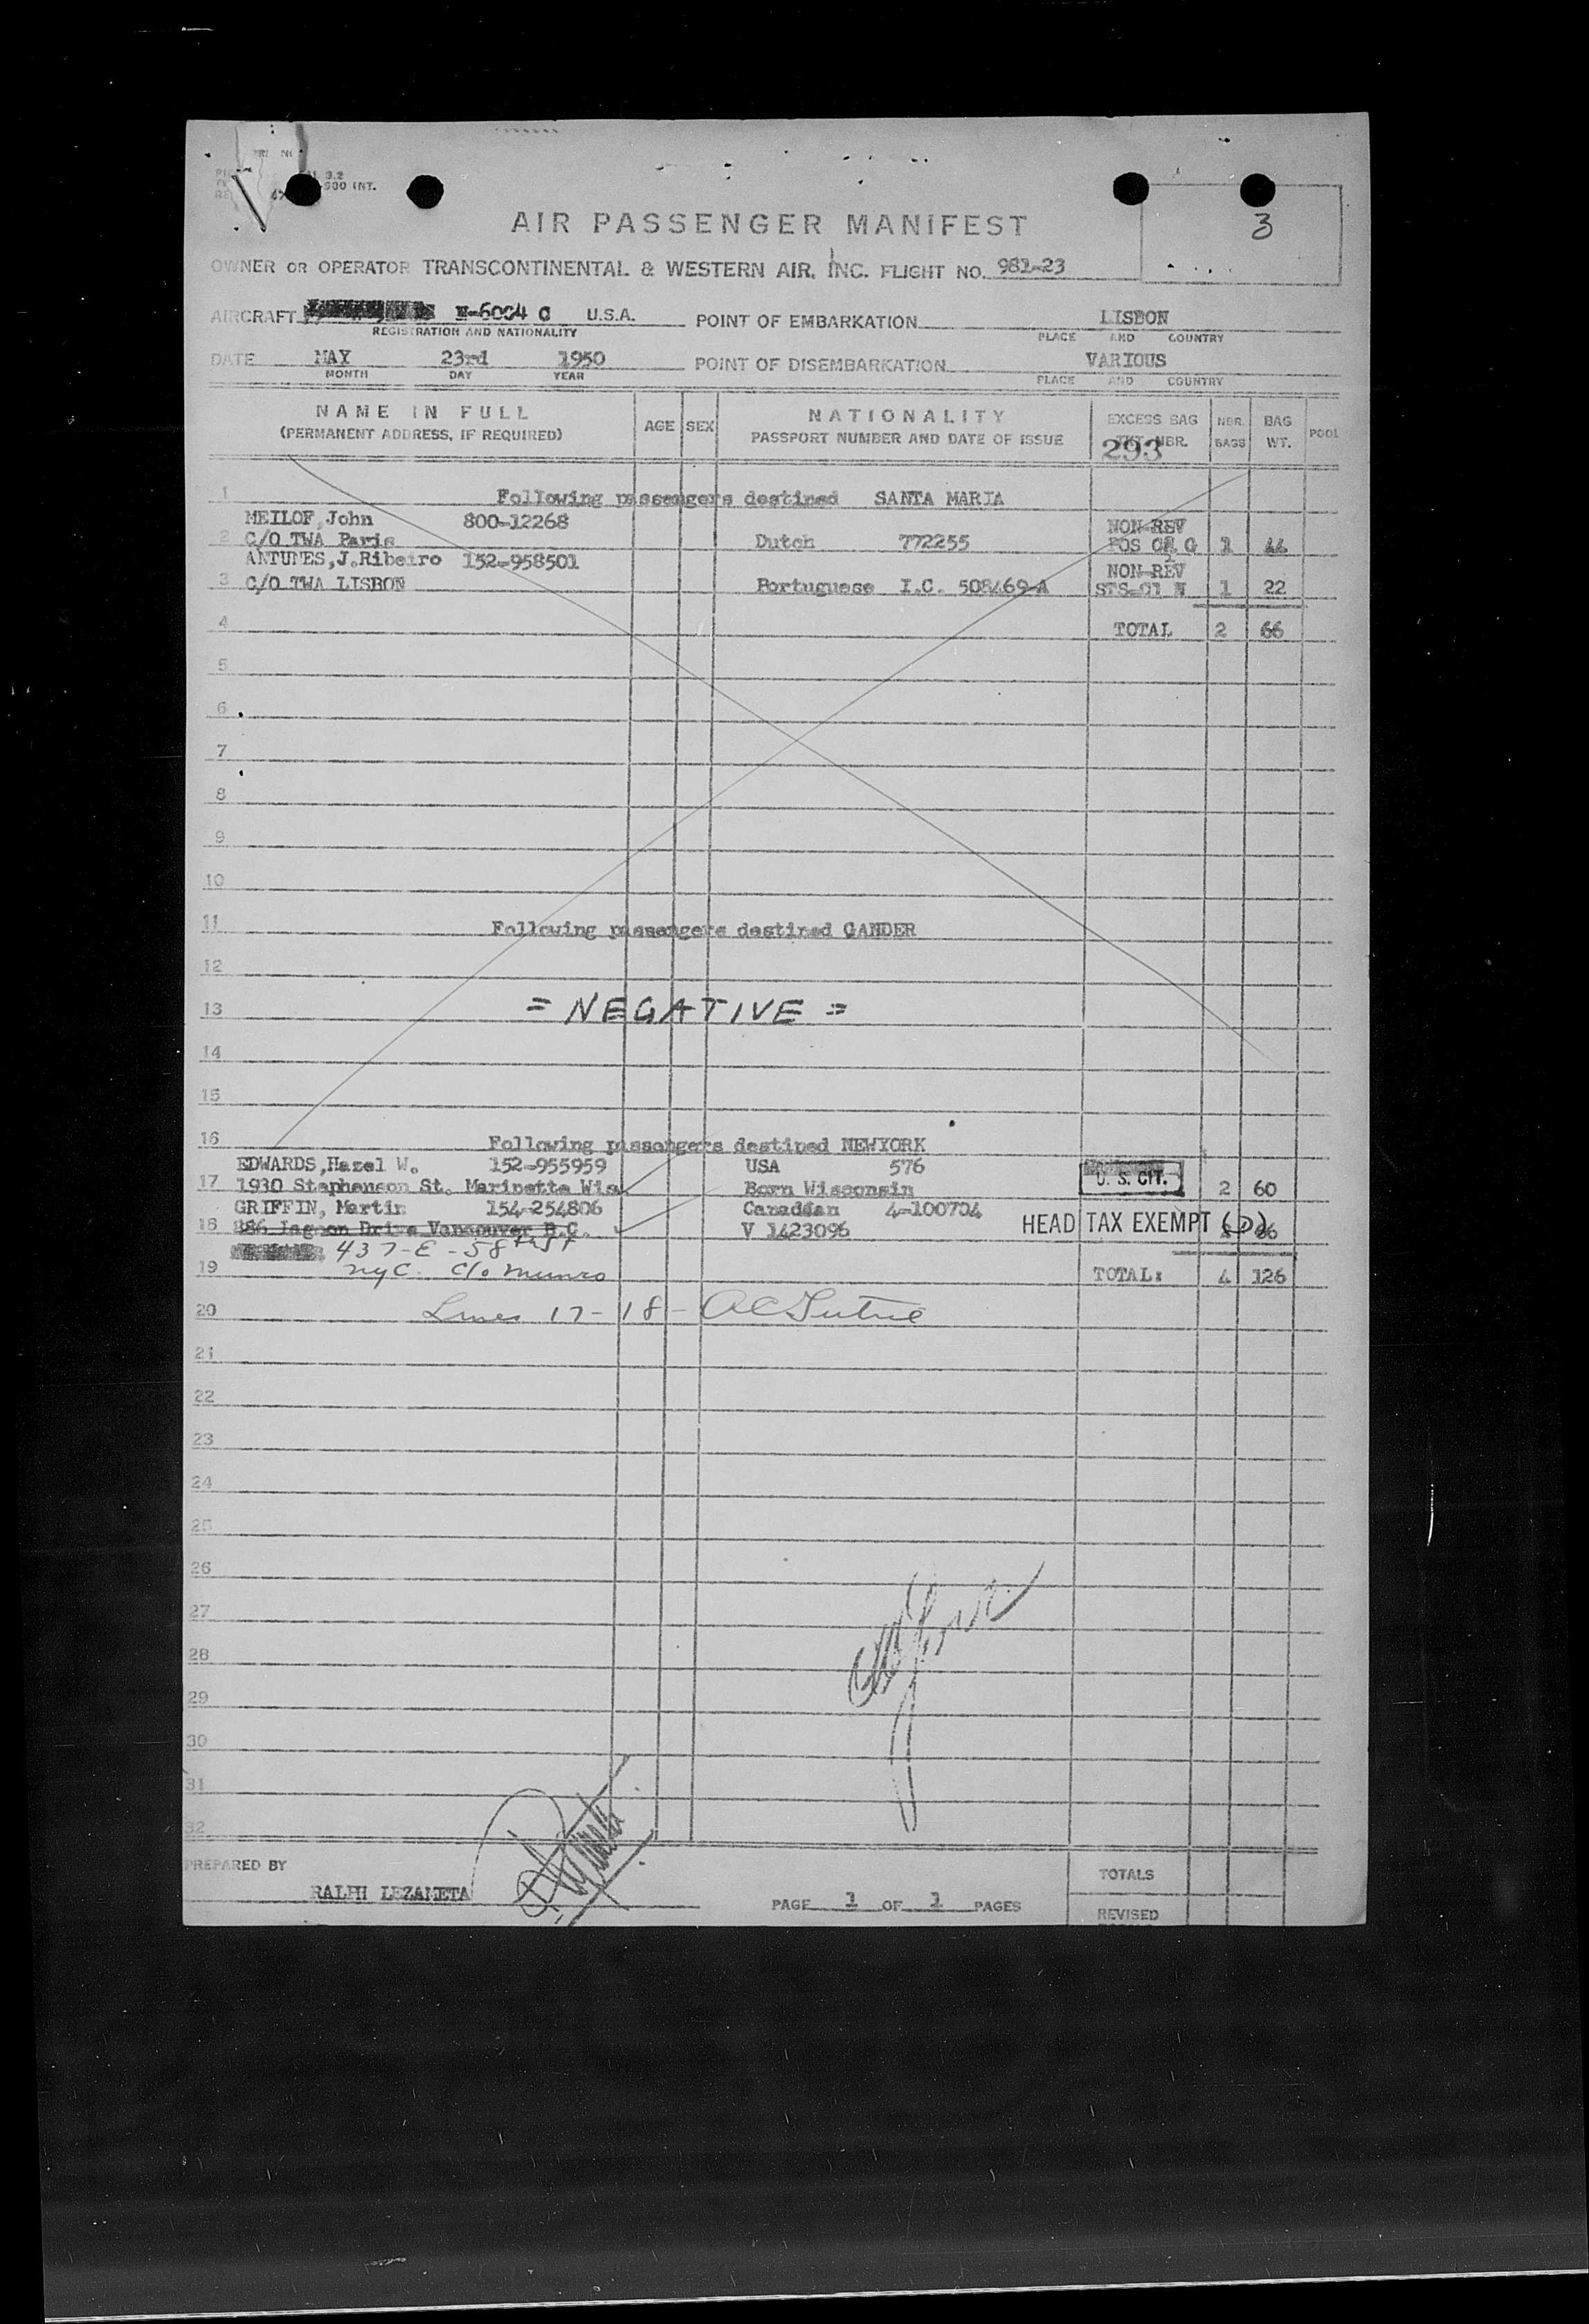 3.2
900 INT.
3
AIR PASSENGER MANIFEST
OWNER OR OPERATOR TRANSCONTINENTAL & WESTERN AIR, INC. FLIGHT NO. 981-23
AIRCRAFT N-6004 C U.S.A. POINT OF EMBARKATION LISBON
REGISTRATION AND NATIONALITY PLACE AND COUNTRY
DATE MAY 23rd 1950 POINT OF DISEMBARKATION VARIOUS
MONTH DAY YEAR PLACE AND COUNTRY
NAME IN FULL AGE SEX NATIONALITY EXCESS BAG NBR. BAG POOL
(PERMANENT ADDRESS, IF REQUIRED) PASSPORT NUMBER AND DATE OF ISSUE TKT. NBR. BAGS WT.
293
1 Following passengers destined SANTA MARIA
MEILOF, John 800-12268 NON-REV
2 C/O TWA Paris Dutch 772255 POS G 1 44
ANTUNES, J.Ribeiro 152-958501 NON-REV
3 C/O TWA LISBON Portuguese I.C. 508469-A STS-91 N 1 22
4 TOTAL 2 66
5
6
7
8
9
10
11 Following passengers destined GANDER
12
13 = NEGATIVE =
14
15
16 Following passengers destined NEWYORK
EDWARDS, Hazel W. 152-955959 USA 576
17 1930 Stephenson St. Marinette Wis Born Wisconsin U. S. CIT. 2 60
GRIFFIN, Martin 154-254806 Canadian 4-100704
18 886 Lagoon Drive Vancouver B.C. V 1423096 HEAD TAX EXEMPT (D) 66
437-E-58th St
19 nyc. c/o Munro TOTAL: 4 126
20 Lines 17-18-
21
22
23
24
25
26
27
28
29
30
31
32
PREPARED BY TOTALS
RALPH LEZAMETA PAGE 1 OF 1 PAGES
REVISED